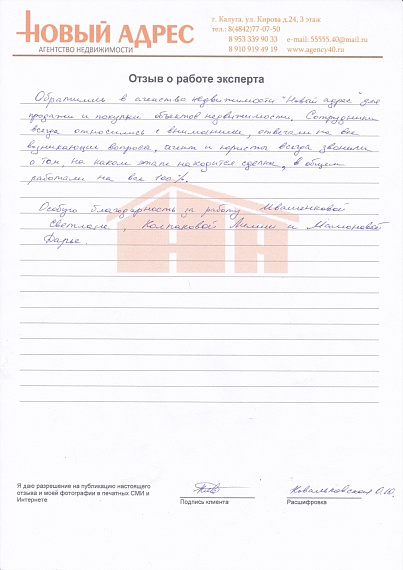 НОВЫЙ АДРЕС
АГЕНТСТВО НЕДВИЖИМОСТИ
г. Калуга, ул. Кирова д.24, 3 этаж
тел.: 8(4842)77-07-50
8 953 339 90 33 e-mail: 55555.40@mail.ru
8 910 919 49 19 www.agency40.ru
Отзыв о работе эксперта
Обратились в агенство недвижимости "Новый адрес" для
продажи и покупки объектов недвижимости. Сотрудники
всегда относились с вниманием, отвечали на все
возникающие вопросы, агент и юристы всегда звонили
о том, на каком этапе находится сделка, в общем
работали на все 100%.
Особую благодарность за работу Иваненковой
Светлане, Колпаковой и
Дарье.
Я даю разрешение на публикацию настоящего
отзыва и моей фотографии в печатных СМИ и
Интернете
Подпись клиента
Ковальковская О.Ю.
Расшифровка